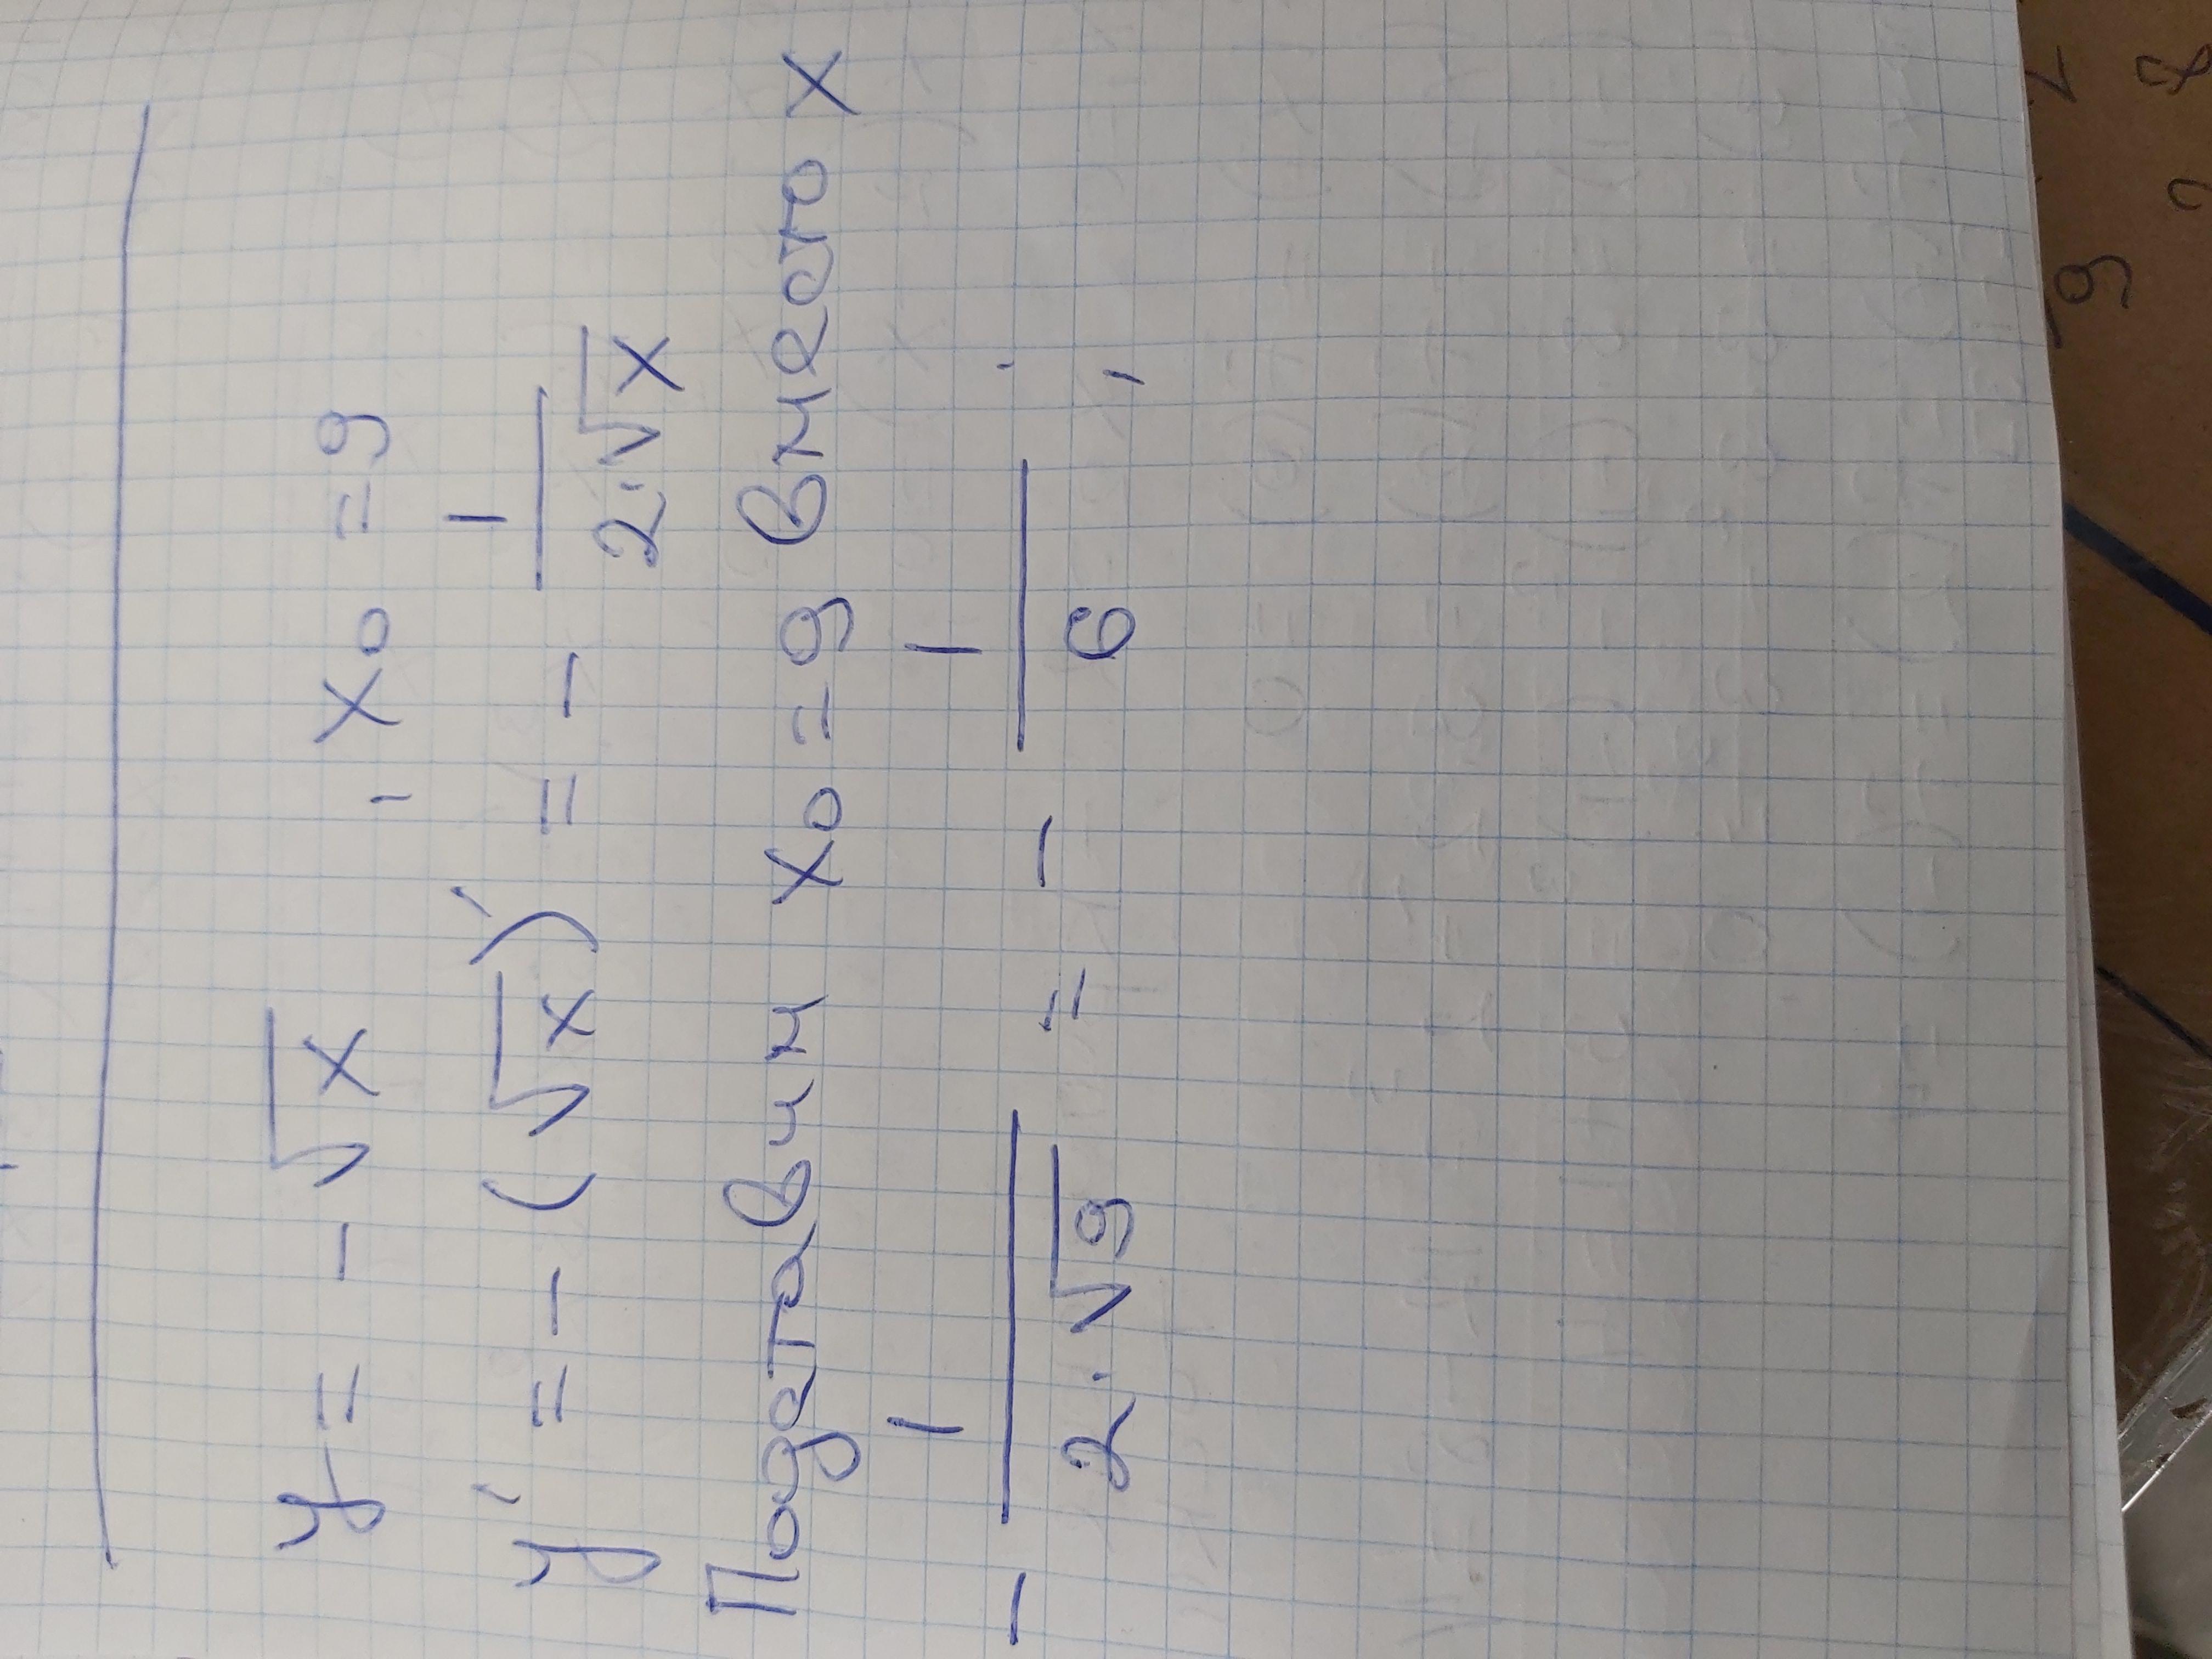 y = - √x , x₀ = 9
y' = - (√x)' = - 1/(2·√x)
Подставим x₀ = 9 вместо x
- 1/(2·√9) = - 1/6 ;